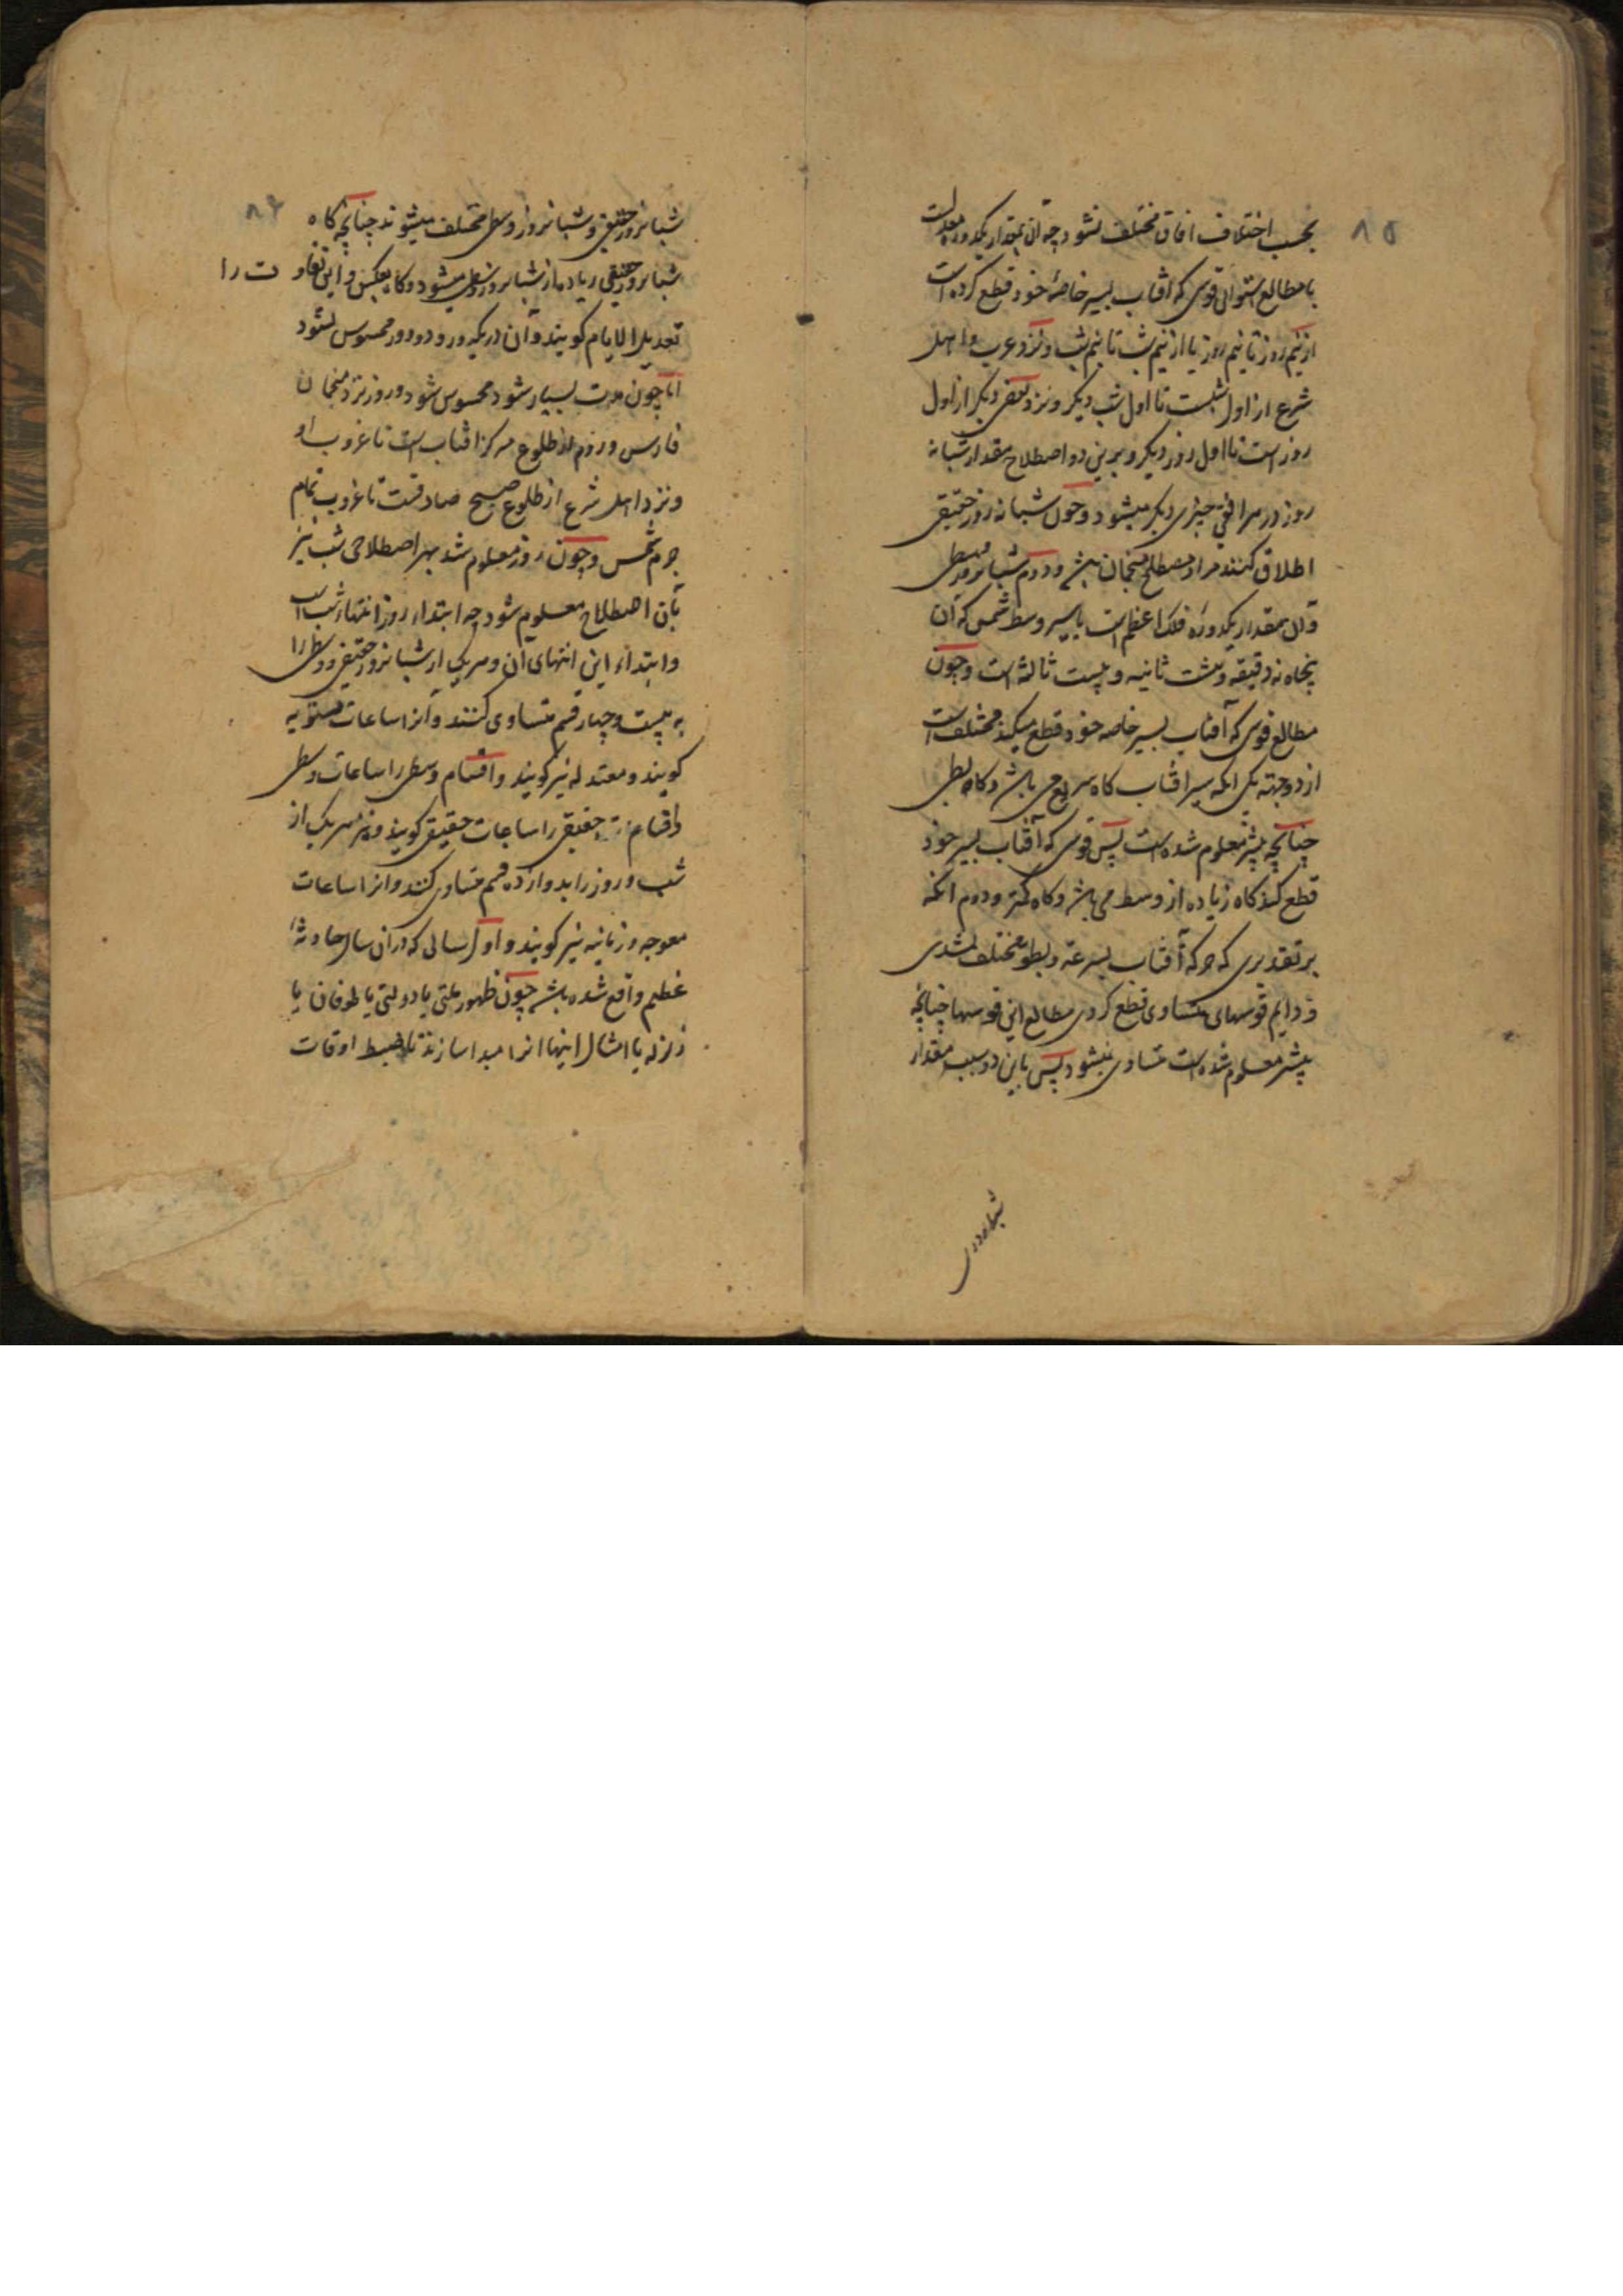 ۸۵
بحسب اختلاف افاق مختلف نشود چه آن بمقدار یکدوره معدلست
با مطالع استوائی قوسی که آفتاب بسیر خاصهٔ خود قطع کرده است
از نیم روز تا نیم روز یا از نیم شب تا نیم شب و نزد عرب و اهل
شرع از اول شبست تا اول شب دیگر و نزد بعضی دیگر از اول
روز است تا اول روز دیگر و برین دو اصطلاح مقدار شبانه
روز در هر افقی چیزی دیگر میشود و چون شبانه روز حقیقی
اطلاق کنند مراد مصطلح منجمان باشد و دوم شبانروز وسطی
و آن بمقدار یکدوره فلک اعظم است با سیر وسط شمس که آن
پنجاه نه دقیقه و هشت ثانیه و بیست ثالثه است و چون
مطالع قوسی که آفتاب بسیر خاصه خود قطع میکند مختلف است
از دو جهته یکی انکه سیر افتاب کاه سریع می باشد و کاه بطی
چنانچه پیشتر معلوم شده است پس قوسی که آفتاب بسیر خود
قطع کند کاه زیاده از وسط می باشد و کاه کمتر و دوم انکه
بر تقدیری که حرکه آفتاب بسرعة و بطوء مختلف نشدی
و دایم قوسهای متساوی قطع کردی مطالع این قوسها چنانچه
پیشتر معلوم شده است متساوی نمیشود پس باین دو سبب مقدار
۸۶
شبانروز حقیقی و شبانروز وسطی مختلف میشوند چنانچه کاه
شبانروز حقیقی زیاده از شبانروز وسطی میشود و کاه بعکس و این تفاوت را
تعدیل الایام کویند و آن در یکدور و دو دور محسوس نشود
اما چون مدت بسیار شود محسوس شود و روز نزد منجمان
فارس و روم از طلوع مرکز افتاب است تا غروب او
و نزد اهل شرع از طلوع صبح صادقست تا غروب تمام
جرم شمس و چون روز معلوم شد بهر اصطلاحی شب نیز
بآن اصطلاح معلوم شود چه ابتداء روز انتهاء شب است
و ابتداء این انتهای آن و هر یک از شبانروز حقیقی و وسطی را
به بیست و چهار قسم متساوی کنند و آنرا ساعات مستویه
کویند و معتدله نیز کویند و اقسام وسطی را ساعات وسطی
و اقسام حقیقی را ساعات حقیقی کویند و نیز هر یک از
شب و روز را بدوازده قسم متساوی کنند و انرا ساعات
معوجه و زمانیه نیز کویند و اول سالی که در ان سال حادثهٔ
عظیم واقع شده باشد چون ظهور ملتی یا دولتی یا طوفان یا
زلزله یا امثال اینها انرا مبدا سازند تا ضبط اوقات